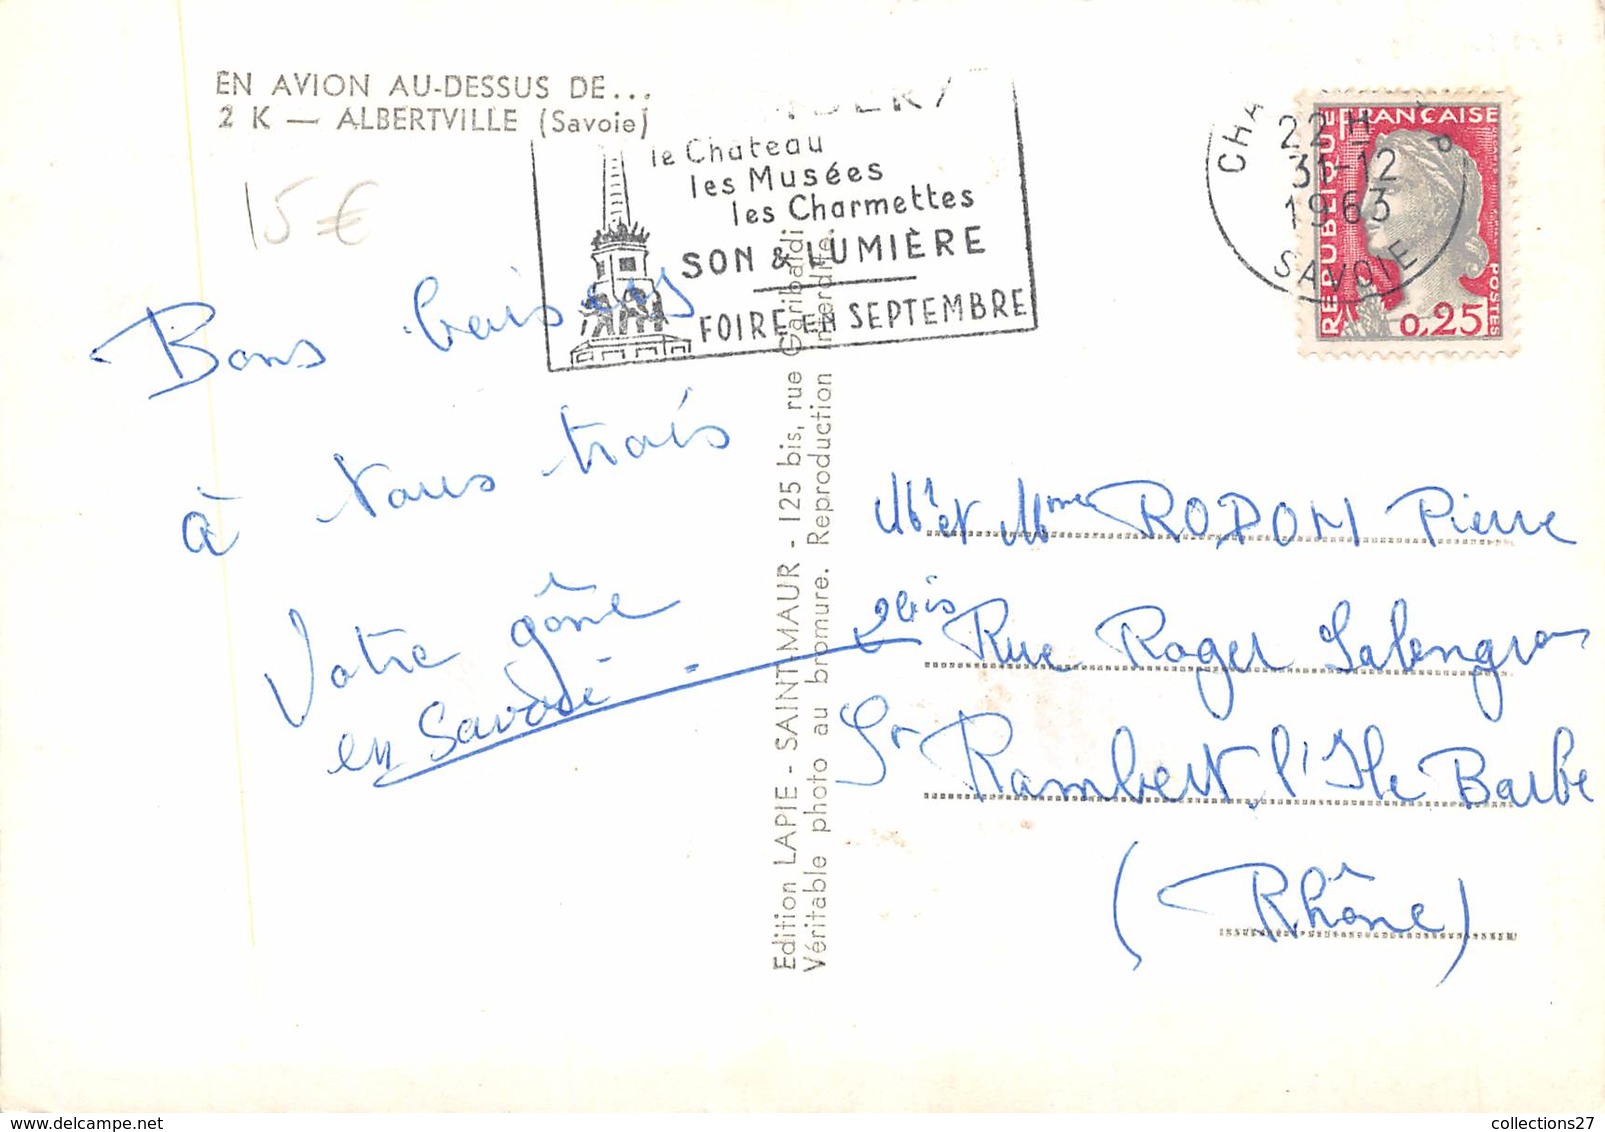 EN AVION AU-DESSUS DE...
2 K — ALBERTVILLE (Savoie)
15 €
le Chateau
les Musées
les Charmettes
SON & LUMIÈRE
FOIRE EN SEPTEMBRE
CHA
22 H
31-12
1963
SAVOIE
REPUBLIQUE FRANÇAISE
POSTES
0,25
Bons baisers
à vous trois
Votre gône
en Savoie
Edition LAPIE - SAINT-MAUR - 125 bis, rue Garibaldi
Véritable photo au bromure. Reproduction interdite.
Mr et Mme RODON Pierre
2bis Rue Roger Salengro
St Rambert l'Ile Barbe
(Rhône)
collections27